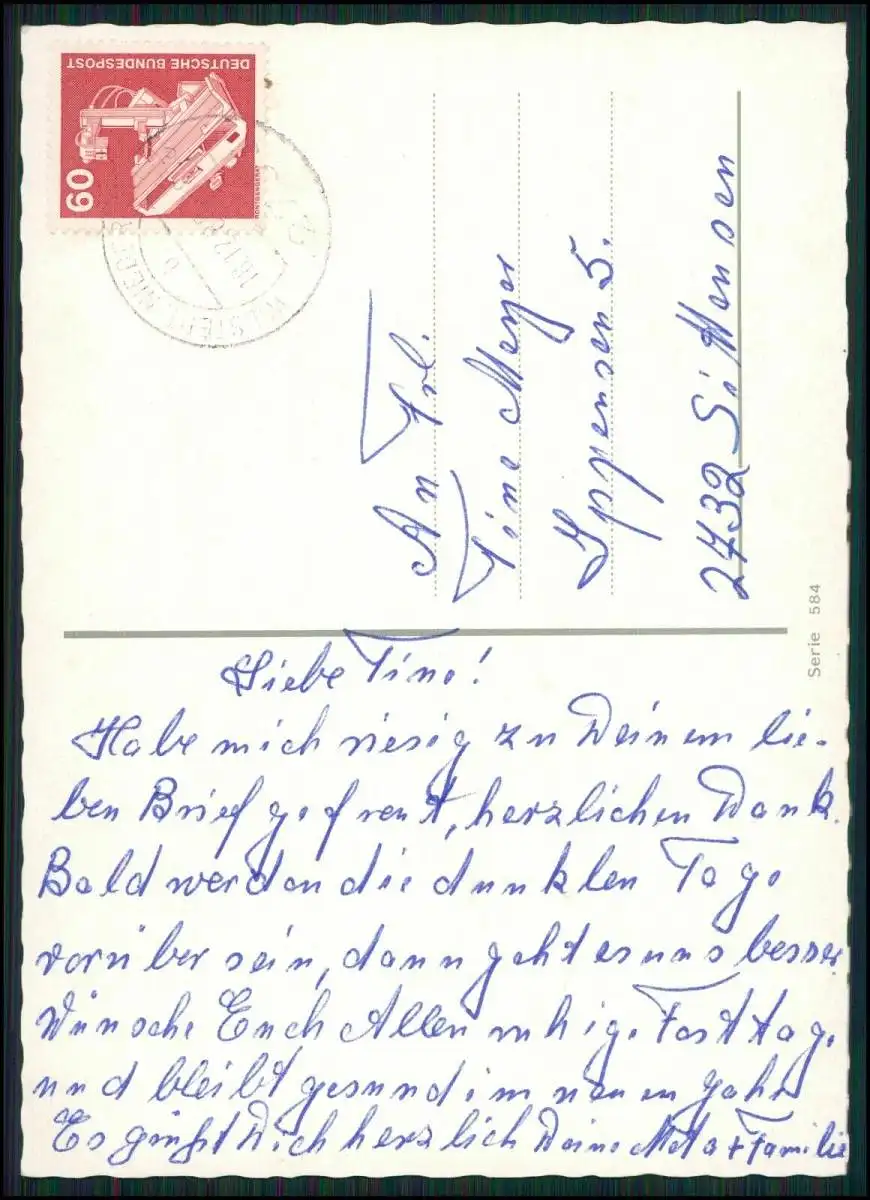 DEUTSCHE BUNDESPOST
60
RÖNTGENGERÄT
An Frl.
Tine Meyer
Ippensen 5.
2732 Sittensen
Serie 584
Liebe Tine!
Habe mich riesig zu Deinem lie-
ben Brief gefreut, herzlichen Dank.
Bald werden die dunklen Tage
vorüber sein, dann geht es uns besser.
Wünsche Euch Allen ruhige Festtage
und bleibt gesund im neuen Jahr
Es grüßt Dich herzlich Deine Meta + Familie